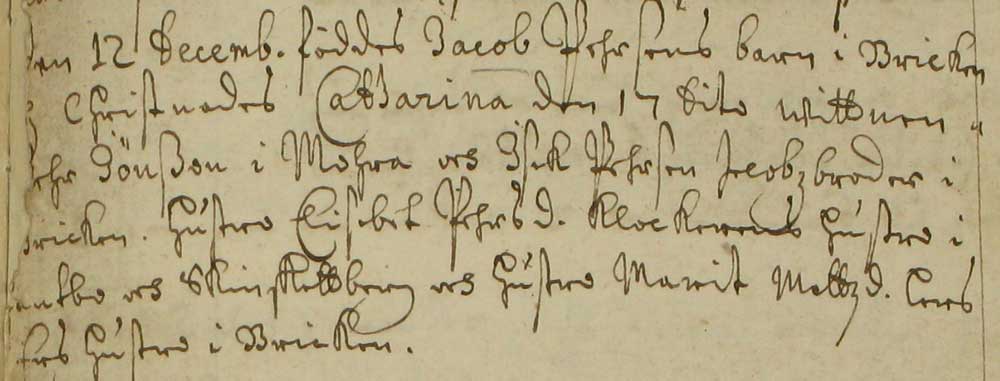 den 12 Decemb. föddes Jacob Pehrsens barn i Bricken
Christnades Catharina den 17 Dito wittnen
Pehr Jönsson i Mohra och Isik Pehrsen Jacobz broder i
Bricken. Hústro Elisabet Pehrs d. Klockerens Hústro i
och Skinskattberg och Hústro Marit Mattz d. Lars
Hústro i Bricken.